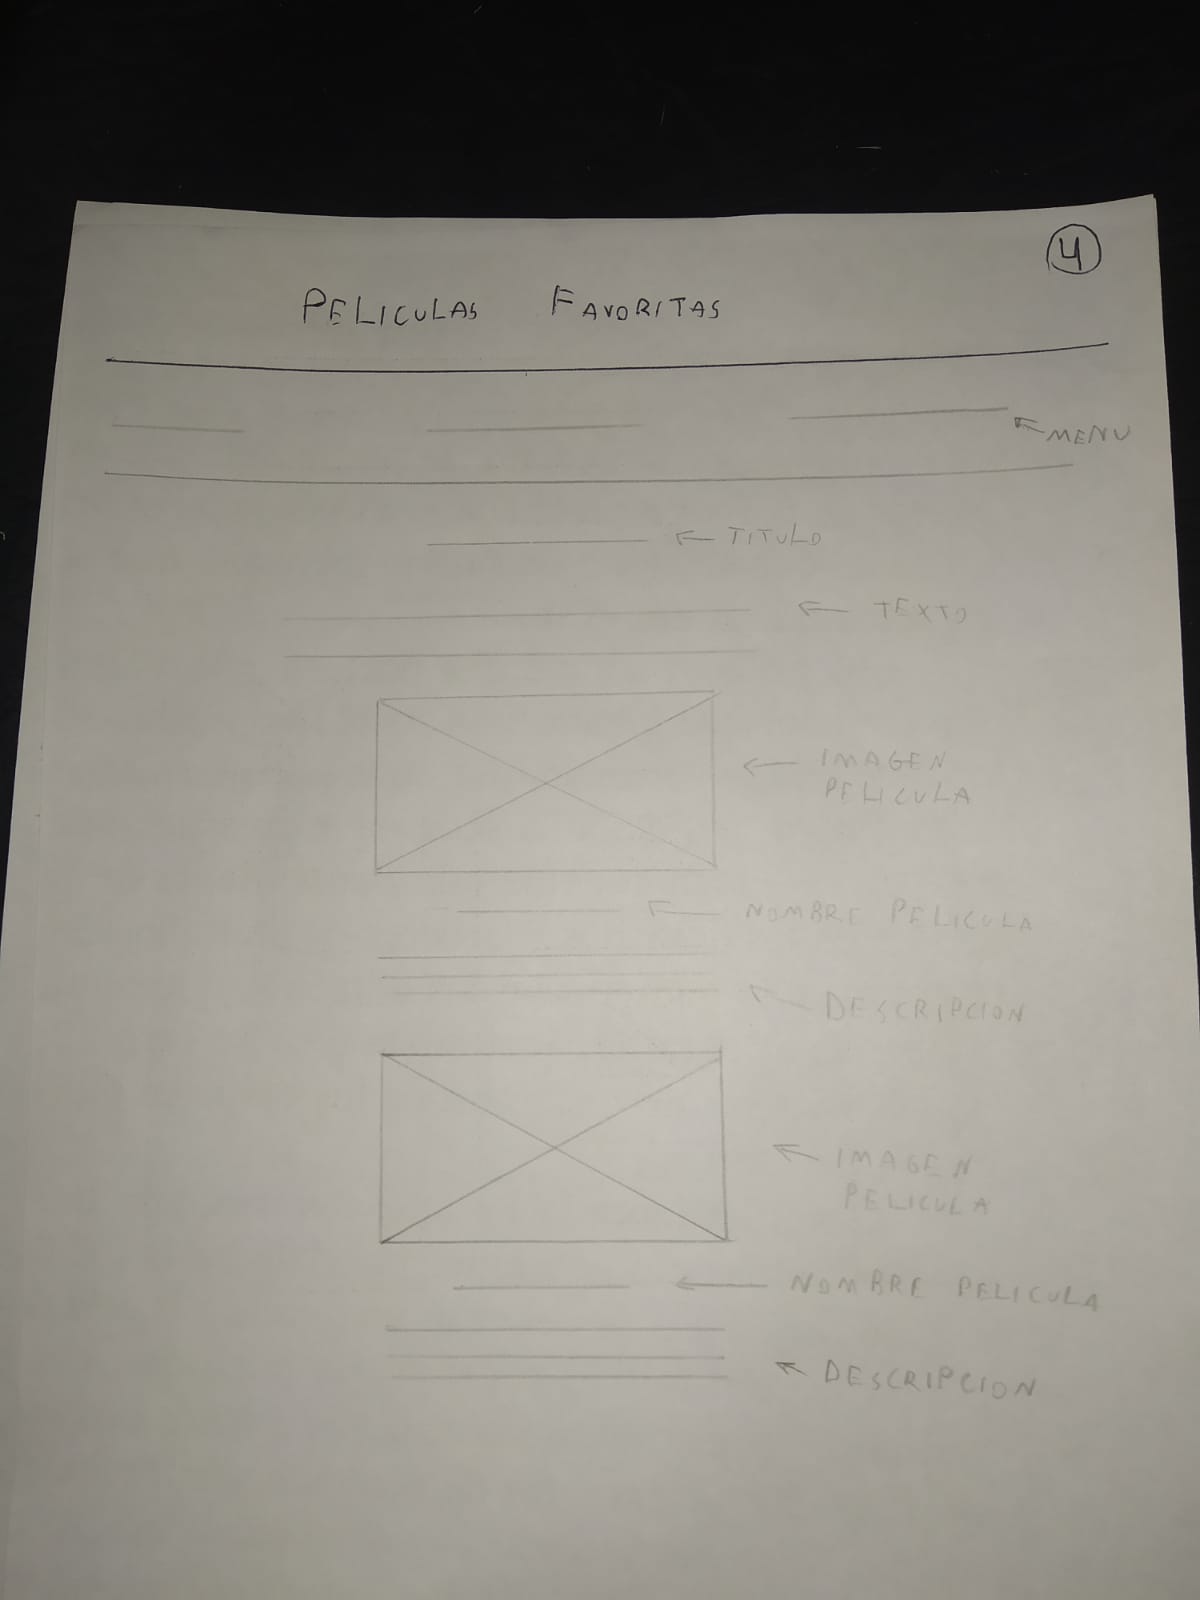 4
PELICULAS FAVORITAS
MENU
TITULO
TEXTO
IMAGEN
PELICULA
NOMBRE PELICULA
DESCRIPCION
IMAGEN
PELICULA
NOMBRE PELICULA
DESCRIPCION